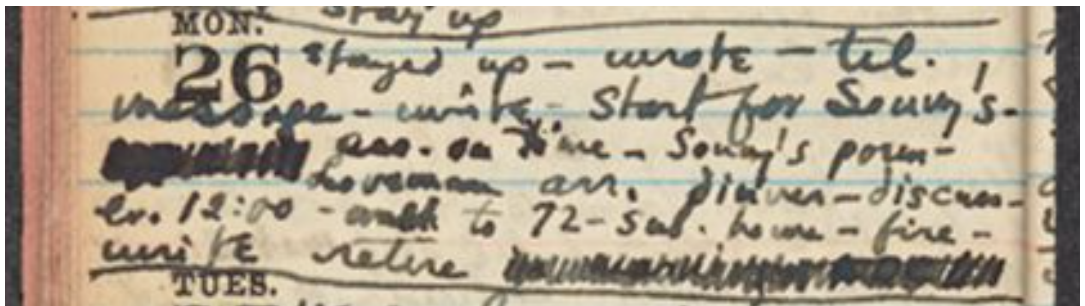 stay up
MON.
26 stayed up – wrote – tel.
message – write. Start for Sonny's –
arr. on time – Sonny's poem –
Loveman arr. dinner – discuss –
lv. 12:00 – walk to 72 – sub. home – fire –
write retire
TUES.